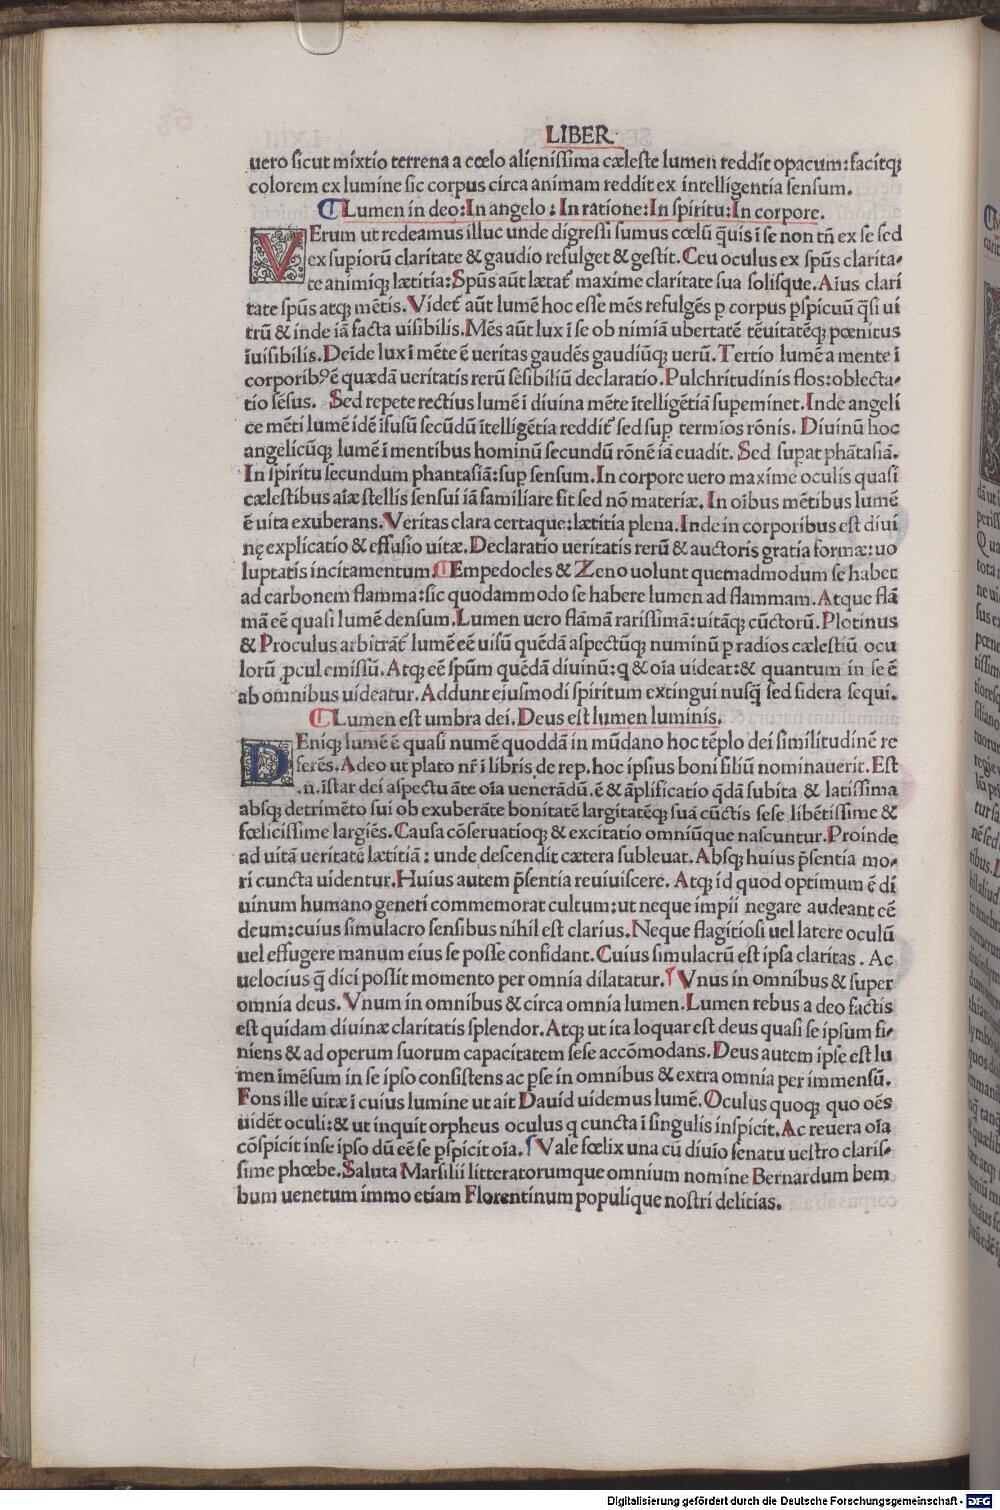 LIBER
uero sicut mixtio terrena a cœlo alienissima cæleste lumen reddit opacum: facitq;
colorem ex lumine sic corpus circa animam reddit ex intelligentia sensum.
Lumen in deo: In angelo: In ratione: In spiritu: In corpore.
VErum ut redeamus illuc unde digressi sumus cœlũ q̃uis ĩ se non tñ ex se sed
ex supioru᷒ claritate & gaudio refulget & gestit. Ceu oculus ex spũs clarita-
te animiq; lætitia: Spũs aũt lætat̃ maxime claritate sua solisque. Aĩus clari
tate spũs atq; mẽtis. Videt̃ aũt lumẽ hoc esse mẽs refulgẽs p corpus pspicuũ q̃si ui
trũ & inde iã facta uisibilis. Mẽs aũt lux ĩ se ob nimiã ubertatẽ tẽuitatẽq; pœnitus
ĩuisibilis. Deĩde lux ĩ mẽte ẽ ueritas gaudẽs gaudiũq; uerũ. Tertio lumẽ a mente ĩ
corporib⁹ ẽ quædã ueritatis rerũ sẽsibiliũ declaratio. Pulchritudinis flos: oblecta-
tio sẽsus. Sed repete rectius lumẽ ĩ diuina mẽte ĩtelligẽtiã supeminet. Inde angeli
ce mẽti lumẽ idẽ ĩfusũ secũdũ ĩtelligẽtia reddit̃ sed sup termĩos rõnis. Diuinũ hoc
angelicũq; lumẽ ĩ mentibus hominũ secundũ rõnẽ iã euadit. Sed supat phãtasiã.
In spiritu secundum phantasiã: sup sensum. In corpore uero maxime oculis quasi
cælestibus aiæ stellis sensui iã familiare fit sed nõ materiæ. In oĩbus mẽtibus lumẽ
ẽ uita exuberans. Veritas clara certaque: lætitia plena. Inde in corporibus est diui
nę explicatio & effusio uitæ. Declaratio ueritatis rerũ & auctoris gratia formæ: uo
luptatis incitamentum. Empedocles & Zeno uolunt quemadmodum se habet
ad carbonem flamma: sic quodammodo se habere lumen ad flammam. Atque flã
mã eẽ quasi lumẽ densum. Lumen uero flãmã rarissimã: uitãq; cũctorũ. Plotinus
& Proculus arbitrãt̃ lumẽ eẽ uisũ quẽdã aspectũq; numinũ p radios cælestiũ ocu
lorũ pcul emissũ. Atq; eẽ spũm quẽdã diuinũ: q & oĩa uideat: & quantum in se ẽ
ab omnibus uideatur. Addunt eiusmodi spiritum extingui nusq̃ sed sidera sequi.
Lumen est umbra dei. Deus est lumen luminis.
DEniq; lumẽ ẽ quasi numẽ quoddã in mũdano hoc tẽplo dei similitudinẽ re
ferẽs. Adeo ut plato nr̃ ĩ libris de rep. hoc ipsius boni filiũ nominauerit. Est
.n. ĩstar dei aspectu ãte oĩa uenerãdũ. ẽ & ãplificatio q̃dã subita & latissima
absq; detrimẽto sui ob exuberãte bonitatẽ largitatẽq; suã cũctis sese libẽtissime &
fœlicissime largiẽs. Causa cõseruatioq; & excitatio omniũque nascuntur. Proinde
ad uitã ueritatẽ lætitiã: unde descendit cætera subleuat. Absq; huius p̃sentia mo-
ri cuncta uidentur. Huius autem p̃sentia reuiuiscere. Atq; id quod optimum ẽ di
uinum humano generi commemorat cultum: ut neque impii negare audeant eẽ
deum: cuius simulacro sensibus nihil est clarius. Neque flagitiosi uel latere oculũ
uel effugere manum eius se posse confidant. Cuius simulacrũ est ipsa claritas. Ac
uelocius q̃ dici possit momento per omnia dilatatur. Vnus in omnibus & super
omnia deus. Vnum in omnibus & circa omnia lumen. Lumen rebus a deo factis
est quidam diuinæ claritatis splendor. Atq; ut ita loquar est deus quasi se ipsum fi-
niens & ad operum suorum capacitatem sese accõmodans. Deus autem ipse est lu
men ĩmẽsum in se ipso consistens ac pse in omnibus & extra omnia per immensũ.
Fons ille uitæ ĩ cuius lumine ut ait Dauid uidemus lumẽ. Oculus quoq; quo oẽs
uidẽt oculi: & ut inquit orpheus oculus q cuncta ĩ singulis inspicit. Ac reuera oĩa
cõspicit in se ipso dũ eẽ se pspicit oĩa. Vale fœlix una cũ diuĩo senatu uestro claris-
sime phœbe. Saluta Marsilii litteratorumque omnium nomine Bernardum bem
bum uenetum immo etiam Florentinum populique nostri delitias.
Digitalisierung gefördert durch die Deutsche Forschungsgemeinschaft - DFG